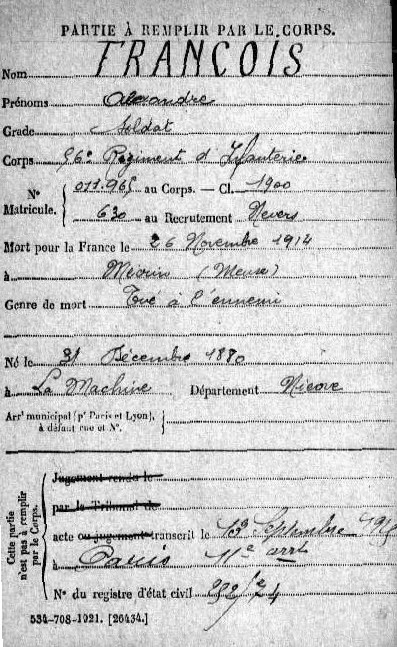 PARTIE À REMPLIR PAR LE CORPS.
Nom FRANÇOIS
Prénoms Alexandre
Grade Soldat
Corps 56e Régiment d'Infanterie
No Matricule. { 011.965 au Corps. — Cl. 1900
630 au Recrutement Nevers
Mort pour la France le 26 Novembre 1914
à (Meuse)
Genre de mort Tué à l'ennemi
Né le 31 Décembre 1880
à La Machine Département Nièvre
Arrt municipal (pr Paris et Lyon), à défaut rue et No.
Cette partie n'est pas à remplir par le Corps.
Jugement rendu le
par le Tribunal de
acte ou jugement transcrit le Septembre
à Paris 11e arrt
No du registre d'état civil
534-708-1921. [26434.]